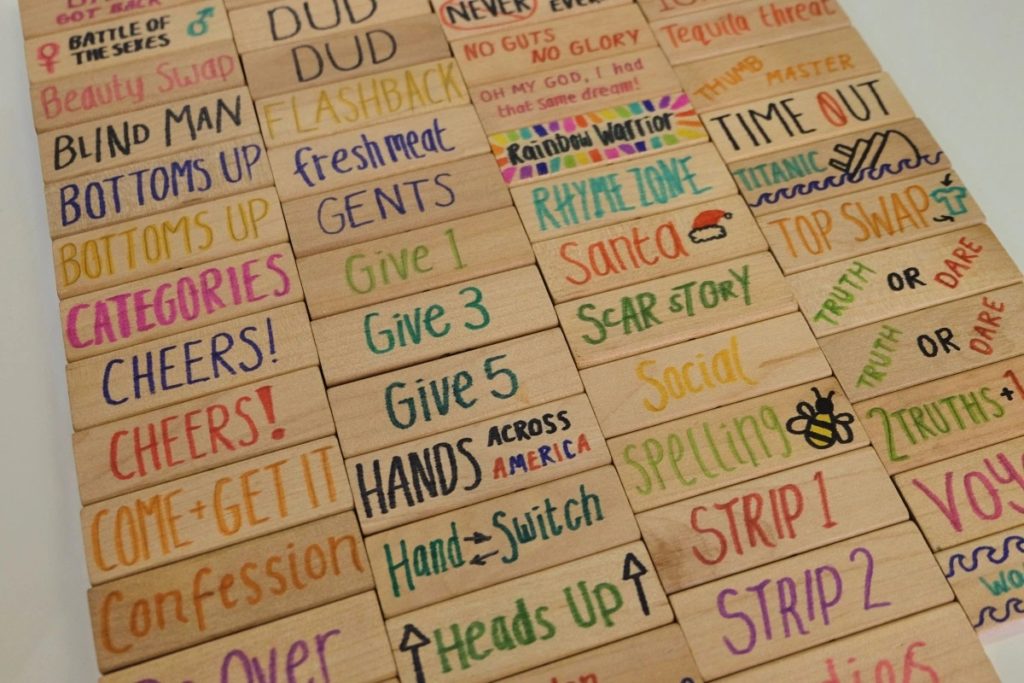 GOT BACK
BATTLE OF
THE SEXES
Beauty Swap
BLIND MAN
BOTTOMS UP
BOTTOMS UP
CATEGORIES
CHEERS!
CHEERS!
COME + GET IT
Confession
Over
DUD
DUD
FLASHBACK
fresh meat
GENTS
Give 1
Give 3
Give 5
HANDS ACROSS
AMERICA
Hand Switch
Heads UP
NEVER
NO GUTS
NO GLORY
OH MY GOD, I had
that same dream!
Rainbow Warrior
RHYME ZONE
Santa
SCAR STORY
Social
Spelling
STRIP 1
STRIP 2
Tequila threat
THUMB MASTER
TIME OUT
TITANIC
TOP SWAP
TRUTH OR DARE
TRUTH OR DARE
2 TRUTHS + 1